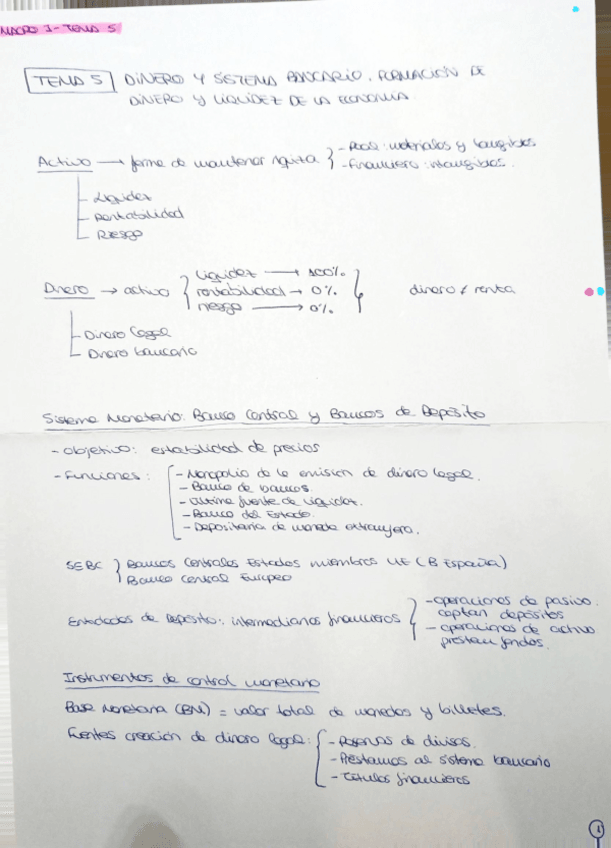 MACRO I - TEMA 5
TEMA 5 DINERO Y SISTEMA BANCARIO. FORMACIÓN DE
DINERO Y LIQUIDEZ DE LA ECONOMÍA.
Activo → forma de mantener riqueza } - Real: materiales y tangibles
- Financiero: intangibles.
- Liquidez
- Rentabilidad
- Riesgo
Dinero → activo { liquidez → 100%
rentabilidad → 0% dinero ≠ renta
riesgo → 0%
- Dinero legal
- Dinero bancario
Sistema Monetario: Banco Central y Bancos de Depósito
- Objetivo: estabilidad de precios
- Funciones: - Monopolio de la emisión de dinero legal.
- Banco de bancos.
- Última fuente de liquidez.
- Banco del Estado.
- Depositaria de moneda extranjera.
SEBC } Bancos Centrales Estados miembros UE (B España)
Banco Central Europeo
Entidades de Depósito: intermediarios financieros } - operaciones de pasivo:
captan depósitos
- operaciones de activo
prestan fondos.
Instrumentos de control monetario
Base Monetaria (BM) = valor total de monedas y billetes.
Fuentes creación de dinero legal: { - Reservas de divisas.
- Préstamos al sistema bancario
- Títulos financieros
1